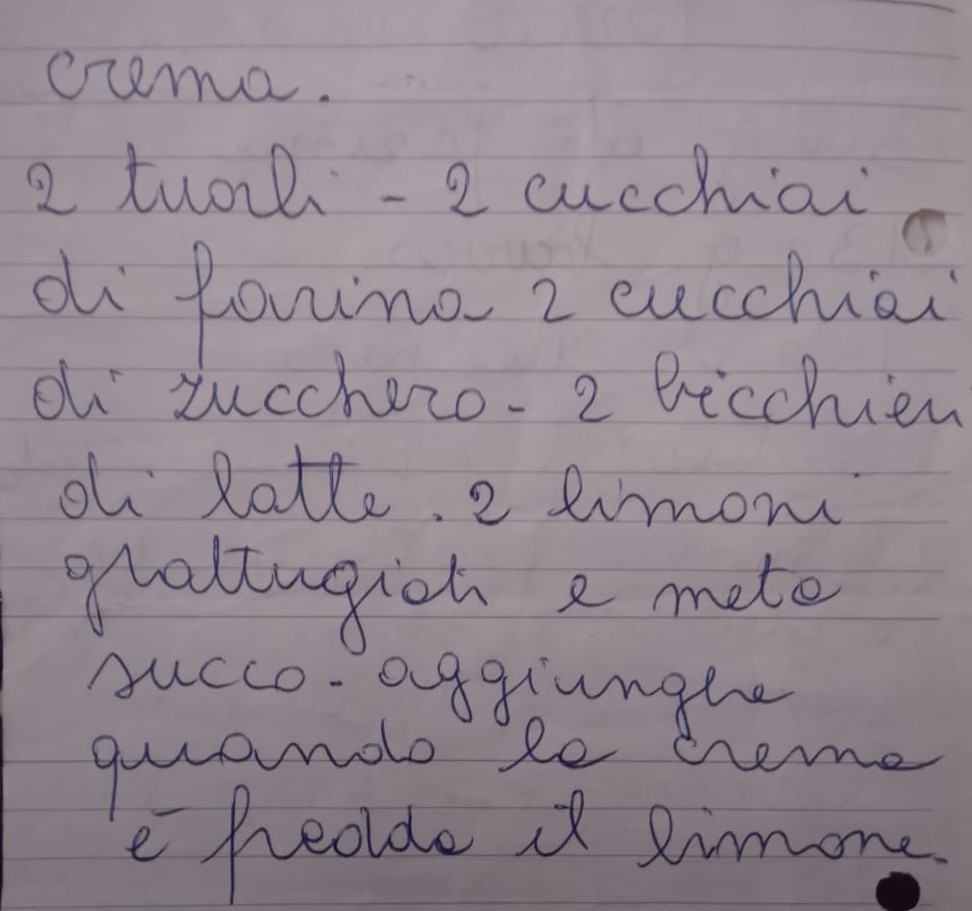 crema.
2 tuorli - 2 cucchiai
di farina 2 cucchiai
di zucchero - 2 bicchieri
di latte . 2 limoni
grattugiati e meta
succo - aggiunghe
quando la crema
è fredda il limone.